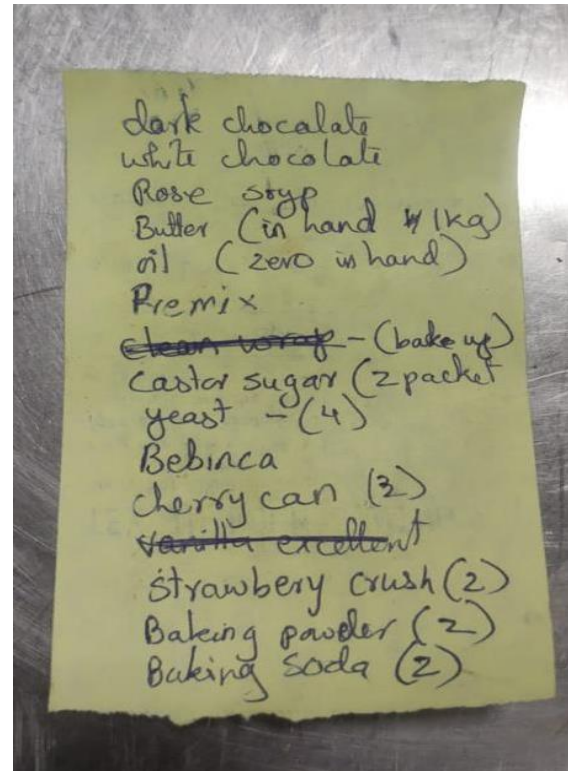 dark chocalate
white chocolate
Rose syyp
Butter (in hand 1kg)
oil (zero in hand)
Premix
clean wrap - (bake up)
castor sugar (2 packet
yeast - (4)
Bebinca
cherry can (3)
vanilla excellent
strawbery crush (2)
Baking powder (2)
Baking soda (2)